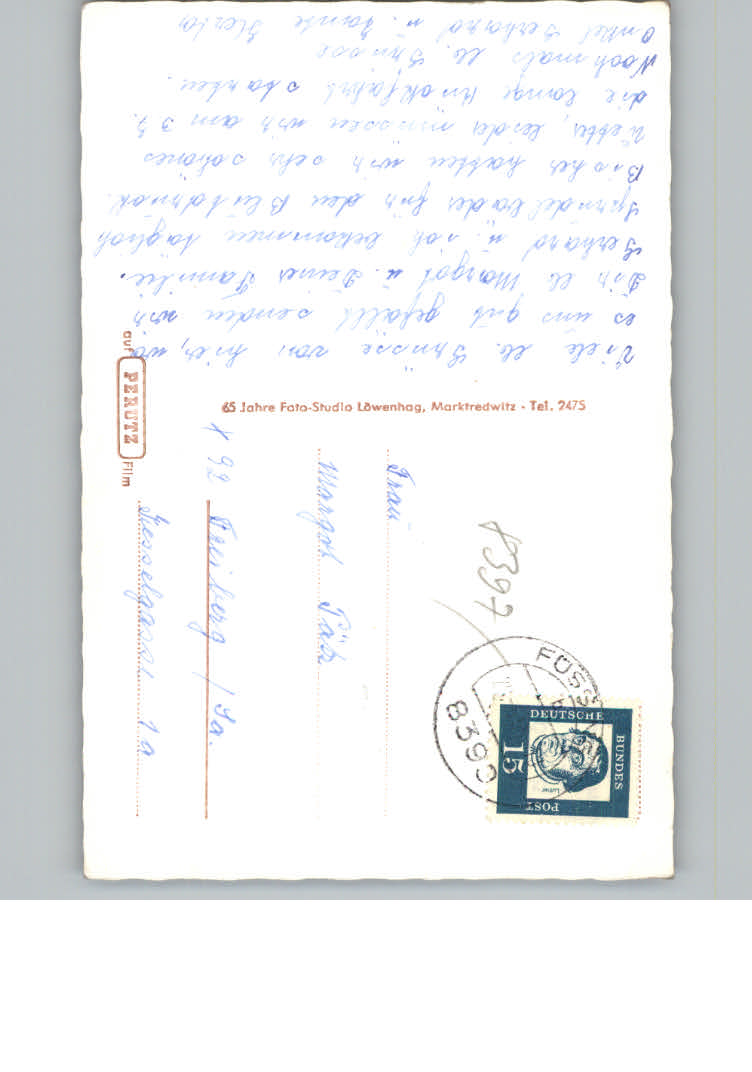 Viele lb. Grüsse von hier, wo
es uns gut gefällt senden wir
Dir lb. Margot u. Deiner Familie.
Gerhard u. ich bekommen täglich
Sprudelbäder für den Blutdruck.
Bisher hatten wir sehr schönes
Wetter, leider müssen wir am 3.7.
die lange Rückfahrt starten.
Nochmals lb. Grüsse
Onkel Gerhard u. Tante Herta
65 Jahre Foto-Studio Löwenhag, Marktredwitz - Tel. 2475
auf PERUTZ Film
Frau
Margot Pätz
X 92 Freiberg / Sa.
Gesselgasse 1a
8397
8399
FÜSS
DEUTSCHE
BUNDES
POST
15
Luther